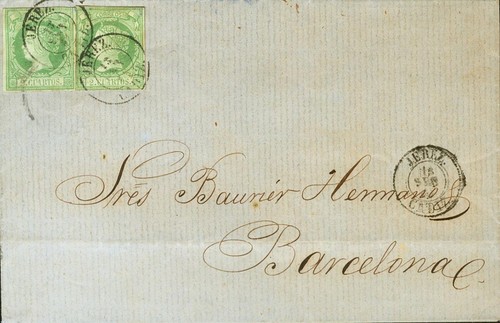 JEREZ.
JEREZ.
CUARTOS
CUARTOS
JEREZ.
CADIZ
Sres Baurier Hermano
Barcelona